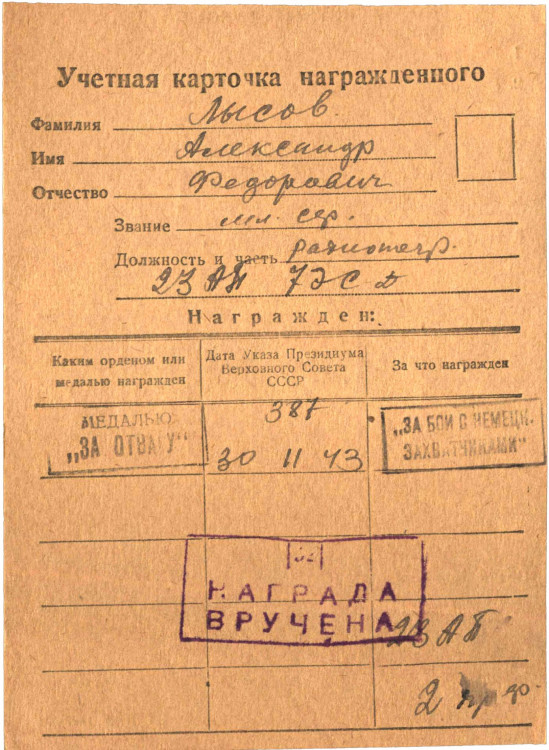 Учетная карточка награжденного
Фамилия Лысов
Имя Александр
Отчество Федорович
Звание мл. сер.
Должность и часть радиотегр.
23 АП 7 Э С Д
Награжден:
Каким орденом или медалью награжден
Дата Указа Президиума Верховного Совета СССР
За что награжден
МЕДАЛЬЮ
„ЗА ОТВАГУ"
387
30 11 43
„ЗА БОИ С НЕМЕЦК.
ЗАХВАТЧИКАМИ"
НАГРАДА
ВРУЧЕНА
23 АП
2